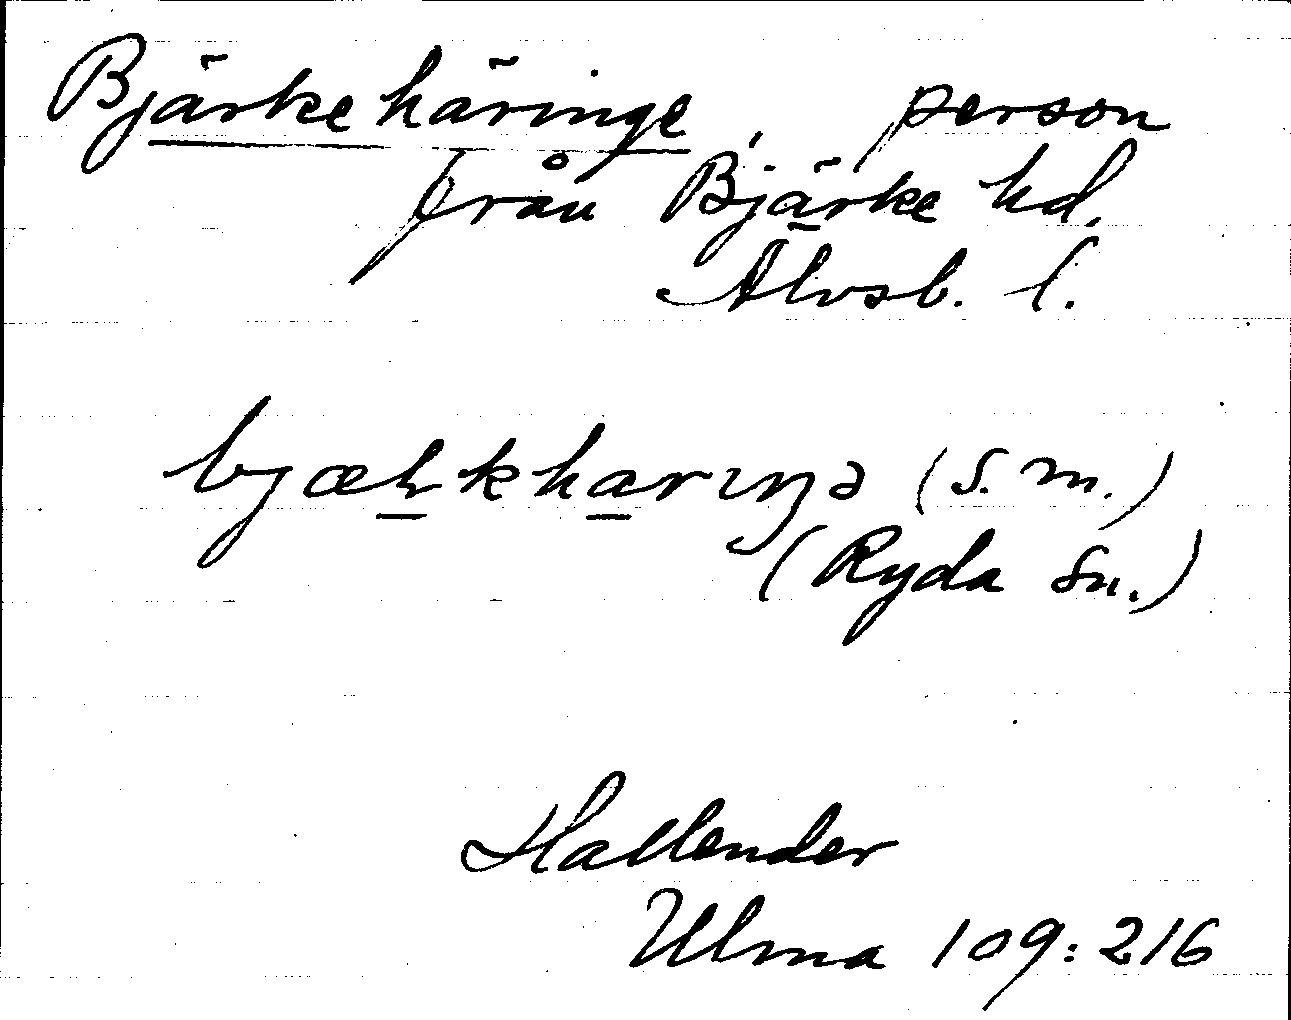 Bjärkehäringe, person
från Bjärke hd.
Älvsb. l.
bjæꞎkharıŋə (s. m.)
(Ryda sn.)
Hallender
Ulma 109:216